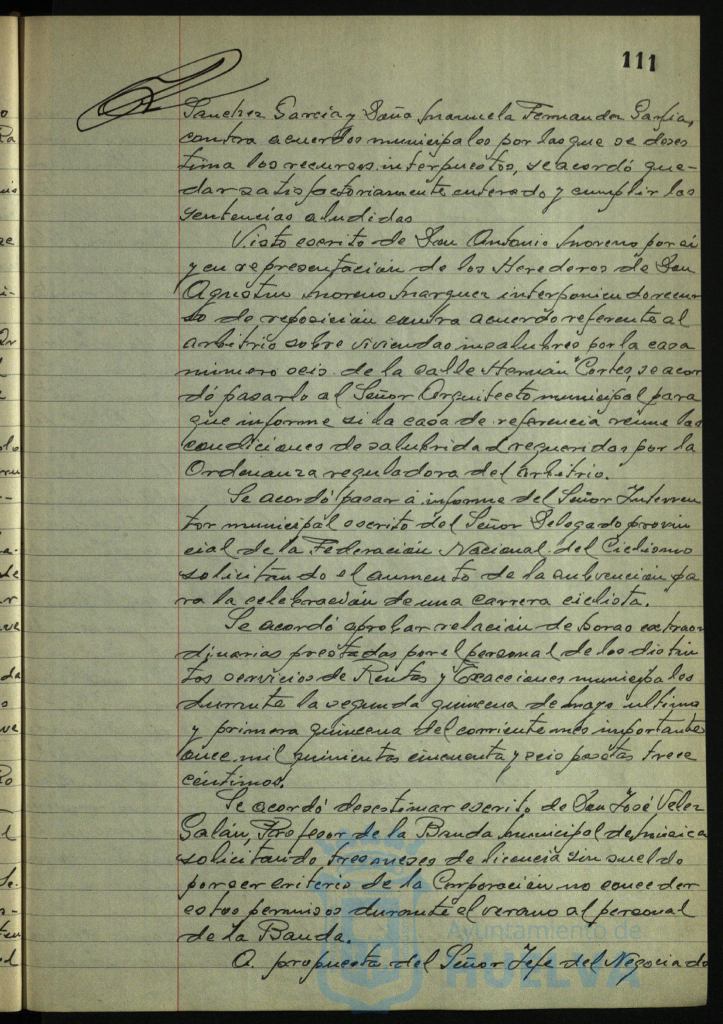 111
Sanchez Garcia y Doña Manuela Fernandez Garfia,
contra acuerdos municipales por los que se deses
tima los recursos interpuestos, se acordó que-
dar satisfactoriamente enterado y cumplir las
sentencias aludidas
Visto escrito de Don Antonio Moreno por si
y en representación de los Herederos de Don
Agustin Moreno Marquez interponiendo recur
so de reposición contra acuerdo referente al
arbitrio sobre viviendas insalubres por la casa
número seis de la calle Hernán Cortes, se acor
dó pasarlo al Señor Arquitecto municipal para
que informe si la casa de referencia reune las
condiciones de salubridad requeridas por la
Ordenanza reguladora del arbitrio.
Se acordó pasar a informe del Señor Interven
tor municipal escrito del Señor Delegado provin
cial de la Federación Nacional del Ciclismo
solicitando el aumento de la subvención pa
ra la celebración de una carrera ciclista.
Se acordó aprobar relación de horas extraor
dinarias prestadas por el personal de los distin
tos servicios de Rentas y Exacciones municipales
durante la segunda quincena de mayo ultimo
y primera quincena del corriente mes importante
once mil quinientas cincuenta y seis pesetas trece
céntimos.
Se acordó desestimar escrito de Don José Velez
Galán, Profesor de la Banda municipal de música
solicitando tres meses de licencia sin sueldo
por ser criterio de la Corporación no conceder
estos permisos durante el verano al personal
de la Banda.
A propuesta del Señor Jefe del Negociado
Ayuntamiento de
HUELVA